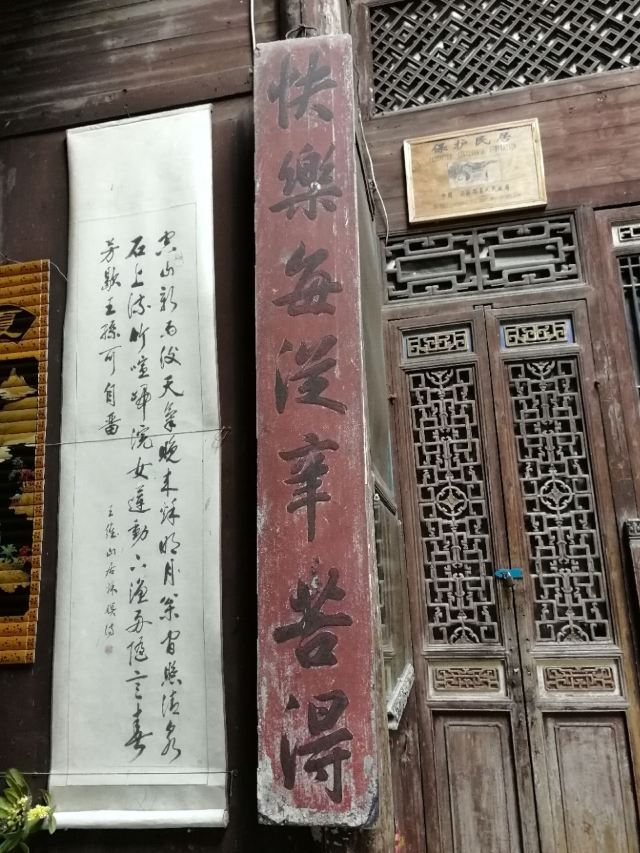 保护民居
快樂每從辛苦得
空山新雨後天氣晚来秋明月松間照清泉
石上流竹喧歸浣女蓮動下漁舟隨意春
芳歇王孫可自留
王維山居秋暝詩